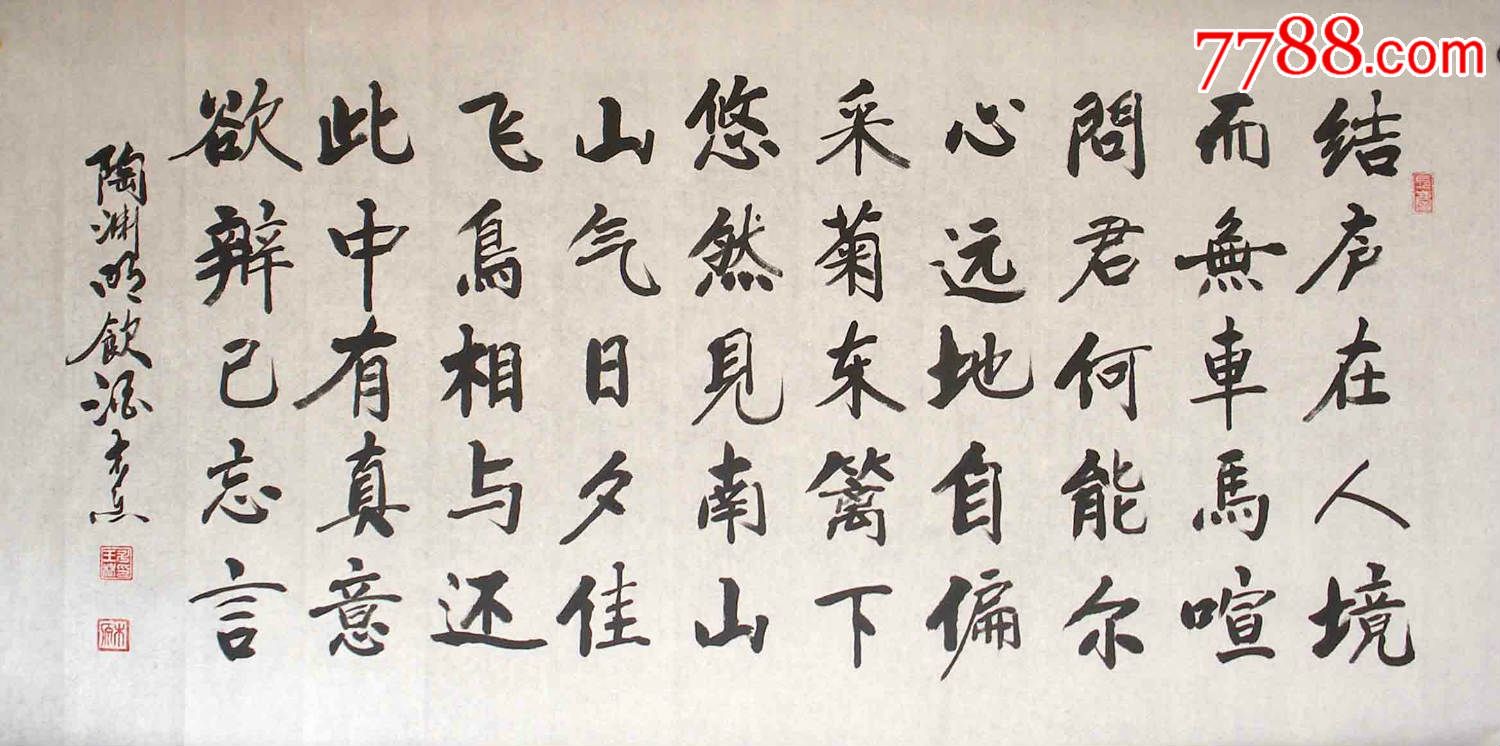 结庐在人境
而無車馬喧
問君何能尔
心远地自偏
采菊东篱下
悠然見南山
山气日夕佳
飞鳥相与还
此中有真意
欲辨已忘言
陶渊明飲酒
7788.com